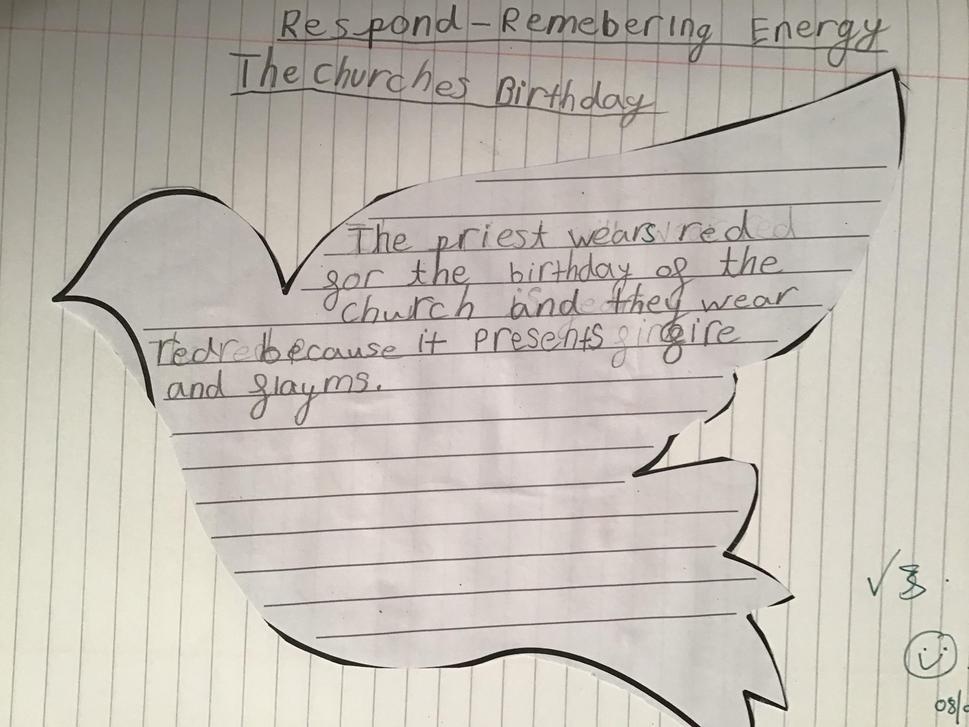 Respond-Remebering Energy
The churches Birthday
The priest wears red
for the birthday of the
church and they wear
red because it presents fire
and flayms.
08/